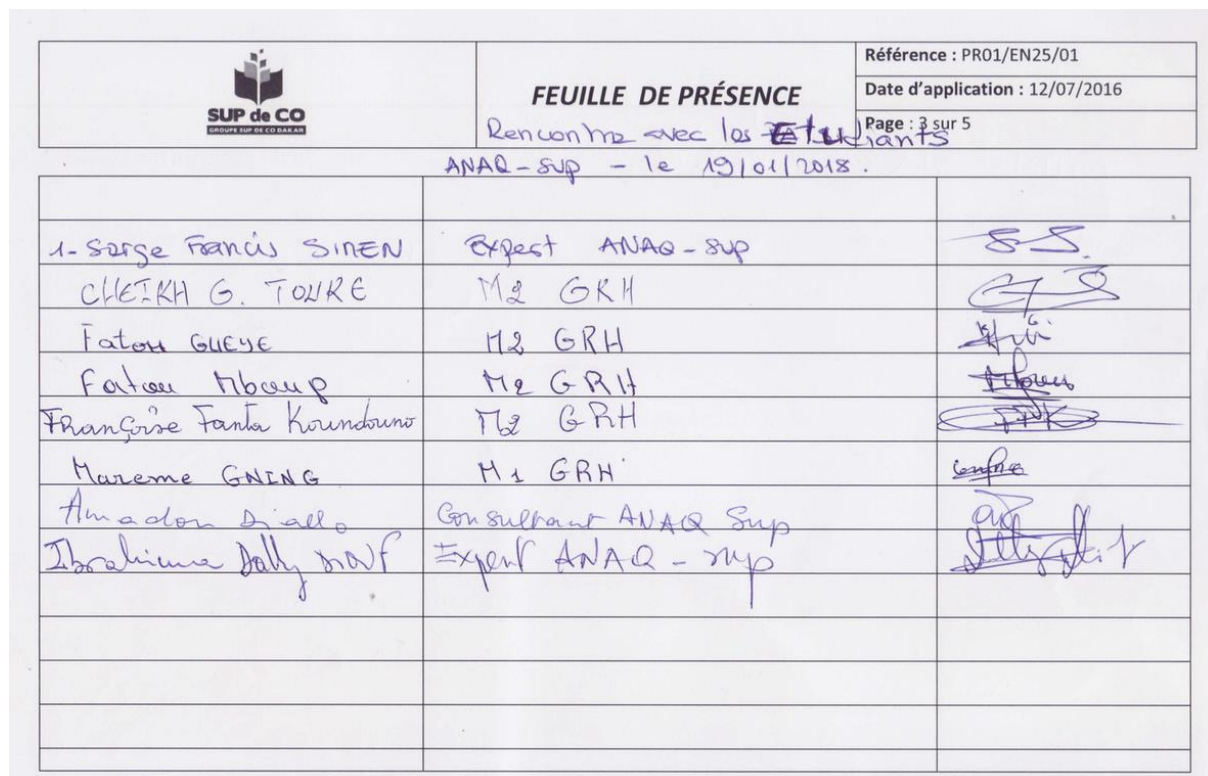 SUP de CO
GROUPE SUP DE CO DAKAR
FEUILLE DE PRÉSENCE
Référence : PR01/EN25/01
Date d'application : 12/07/2016
Page : 3 sur 5
Rencontre avec les Etudiants
ANAQ-SUP - le 19/01/2018.
1- Serge Francis SIMEN Expert ANAQ-SUP S.S.
CHEIKH G. TOURE M2 GRH
Fatou GUEYE M2 GRH
Fatou Mboup M2 GRH
Françoise Fanta Koundouno M2 GRH FFK
Mareme GNING M1 GRH
Amadou Diallo Consultant ANAQ Sup
Ibrahima Dally DIOUF Expert ANAQ - sup